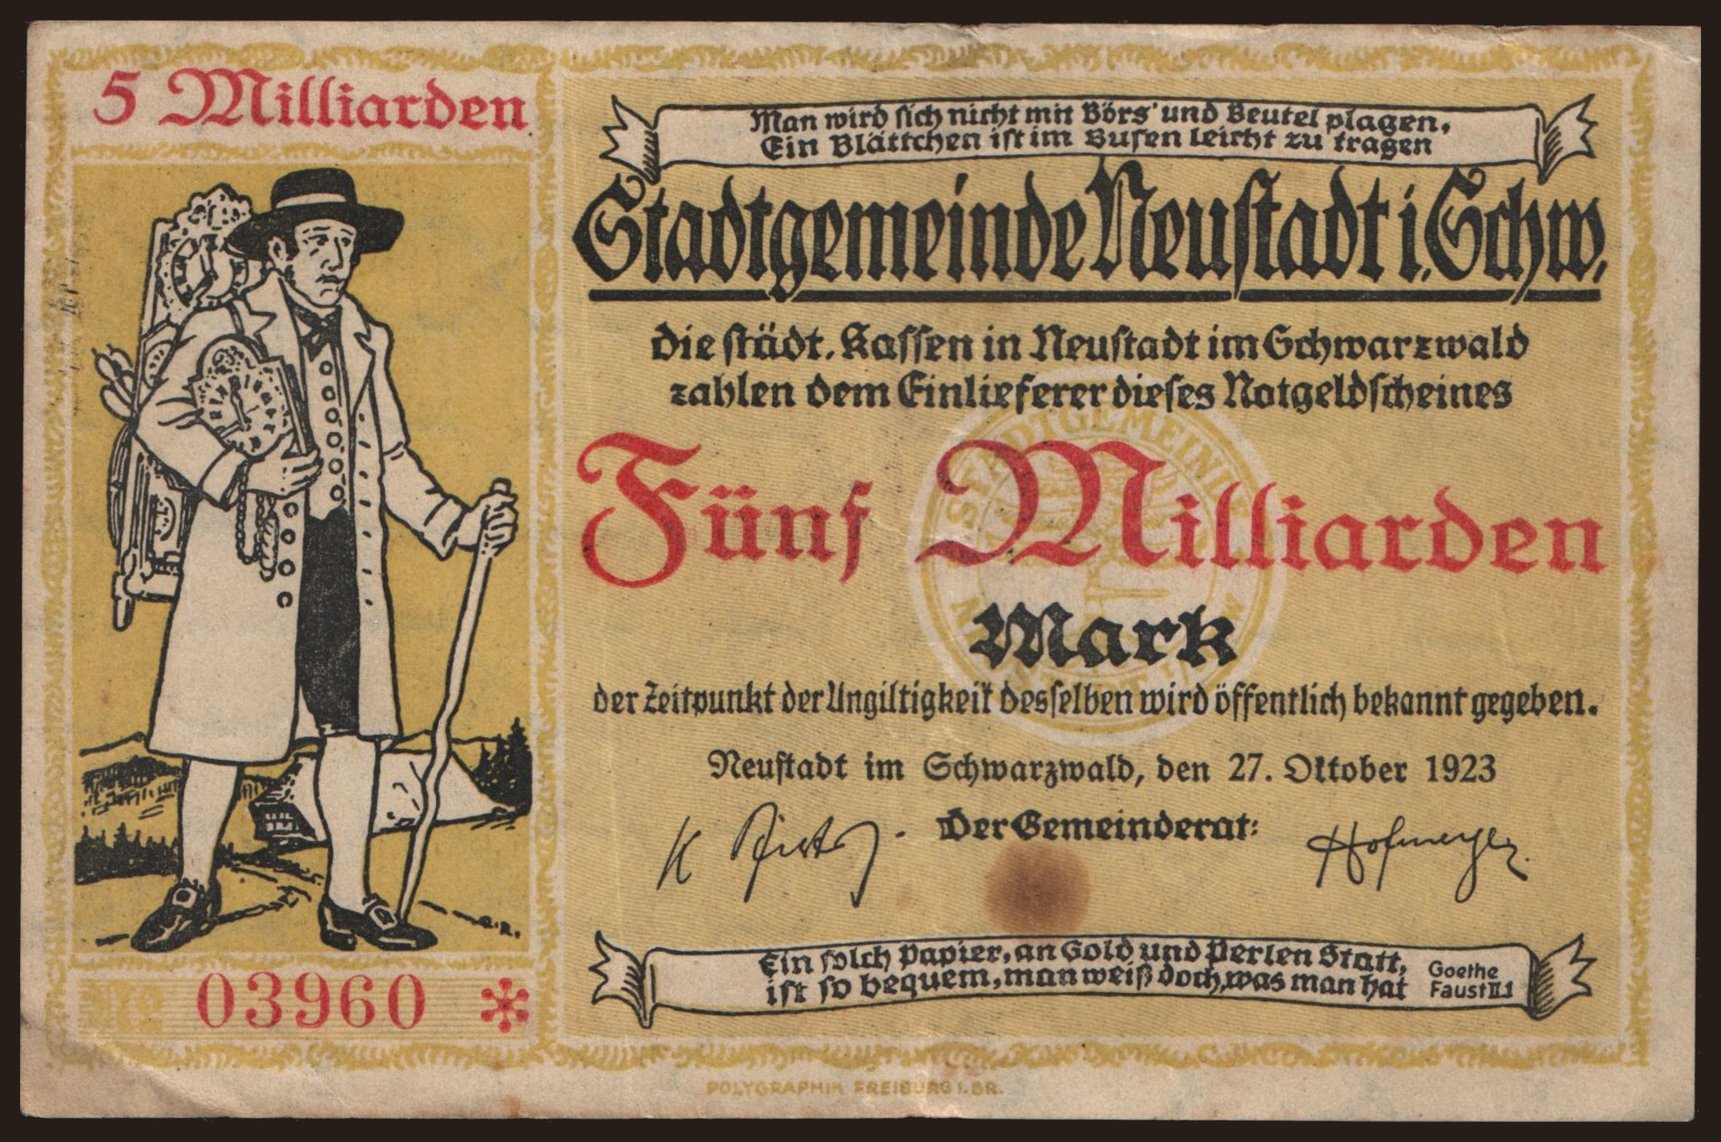 5 Milliarden
Man wird sich nicht mit Börs' und Beutel plagen,
Ein Blättchen ist im Busen leicht zu tragen
Stadtgemeinde Neustadt i. Schw.
die städt. Kassen in Neustadt im Schwarzwald
zahlen dem Einlieferer dieses Notgeldscheines
Fünf Milliarden
Mark
der Zeitpunkt der Ungiltigkeit desselben wird öffentlich bekannt gegeben.
Neustadt im Schwarzwald, den 27. Oktober 1923
Der Gemeinderat:
Hofmeyer
Ein solch Papier, an Gold und Perlen Statt,
ist so bequem, man weiß doch, was man hat
Goethe
Faust II.1
№ 03960 *
STADTGEMEINDE
POLYGRAPHIK FREIBURG I. BR.